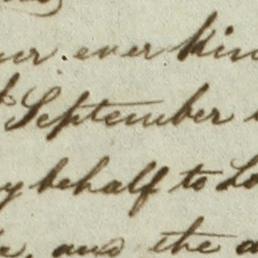 ever kin
September
behalf to Lo
and the a